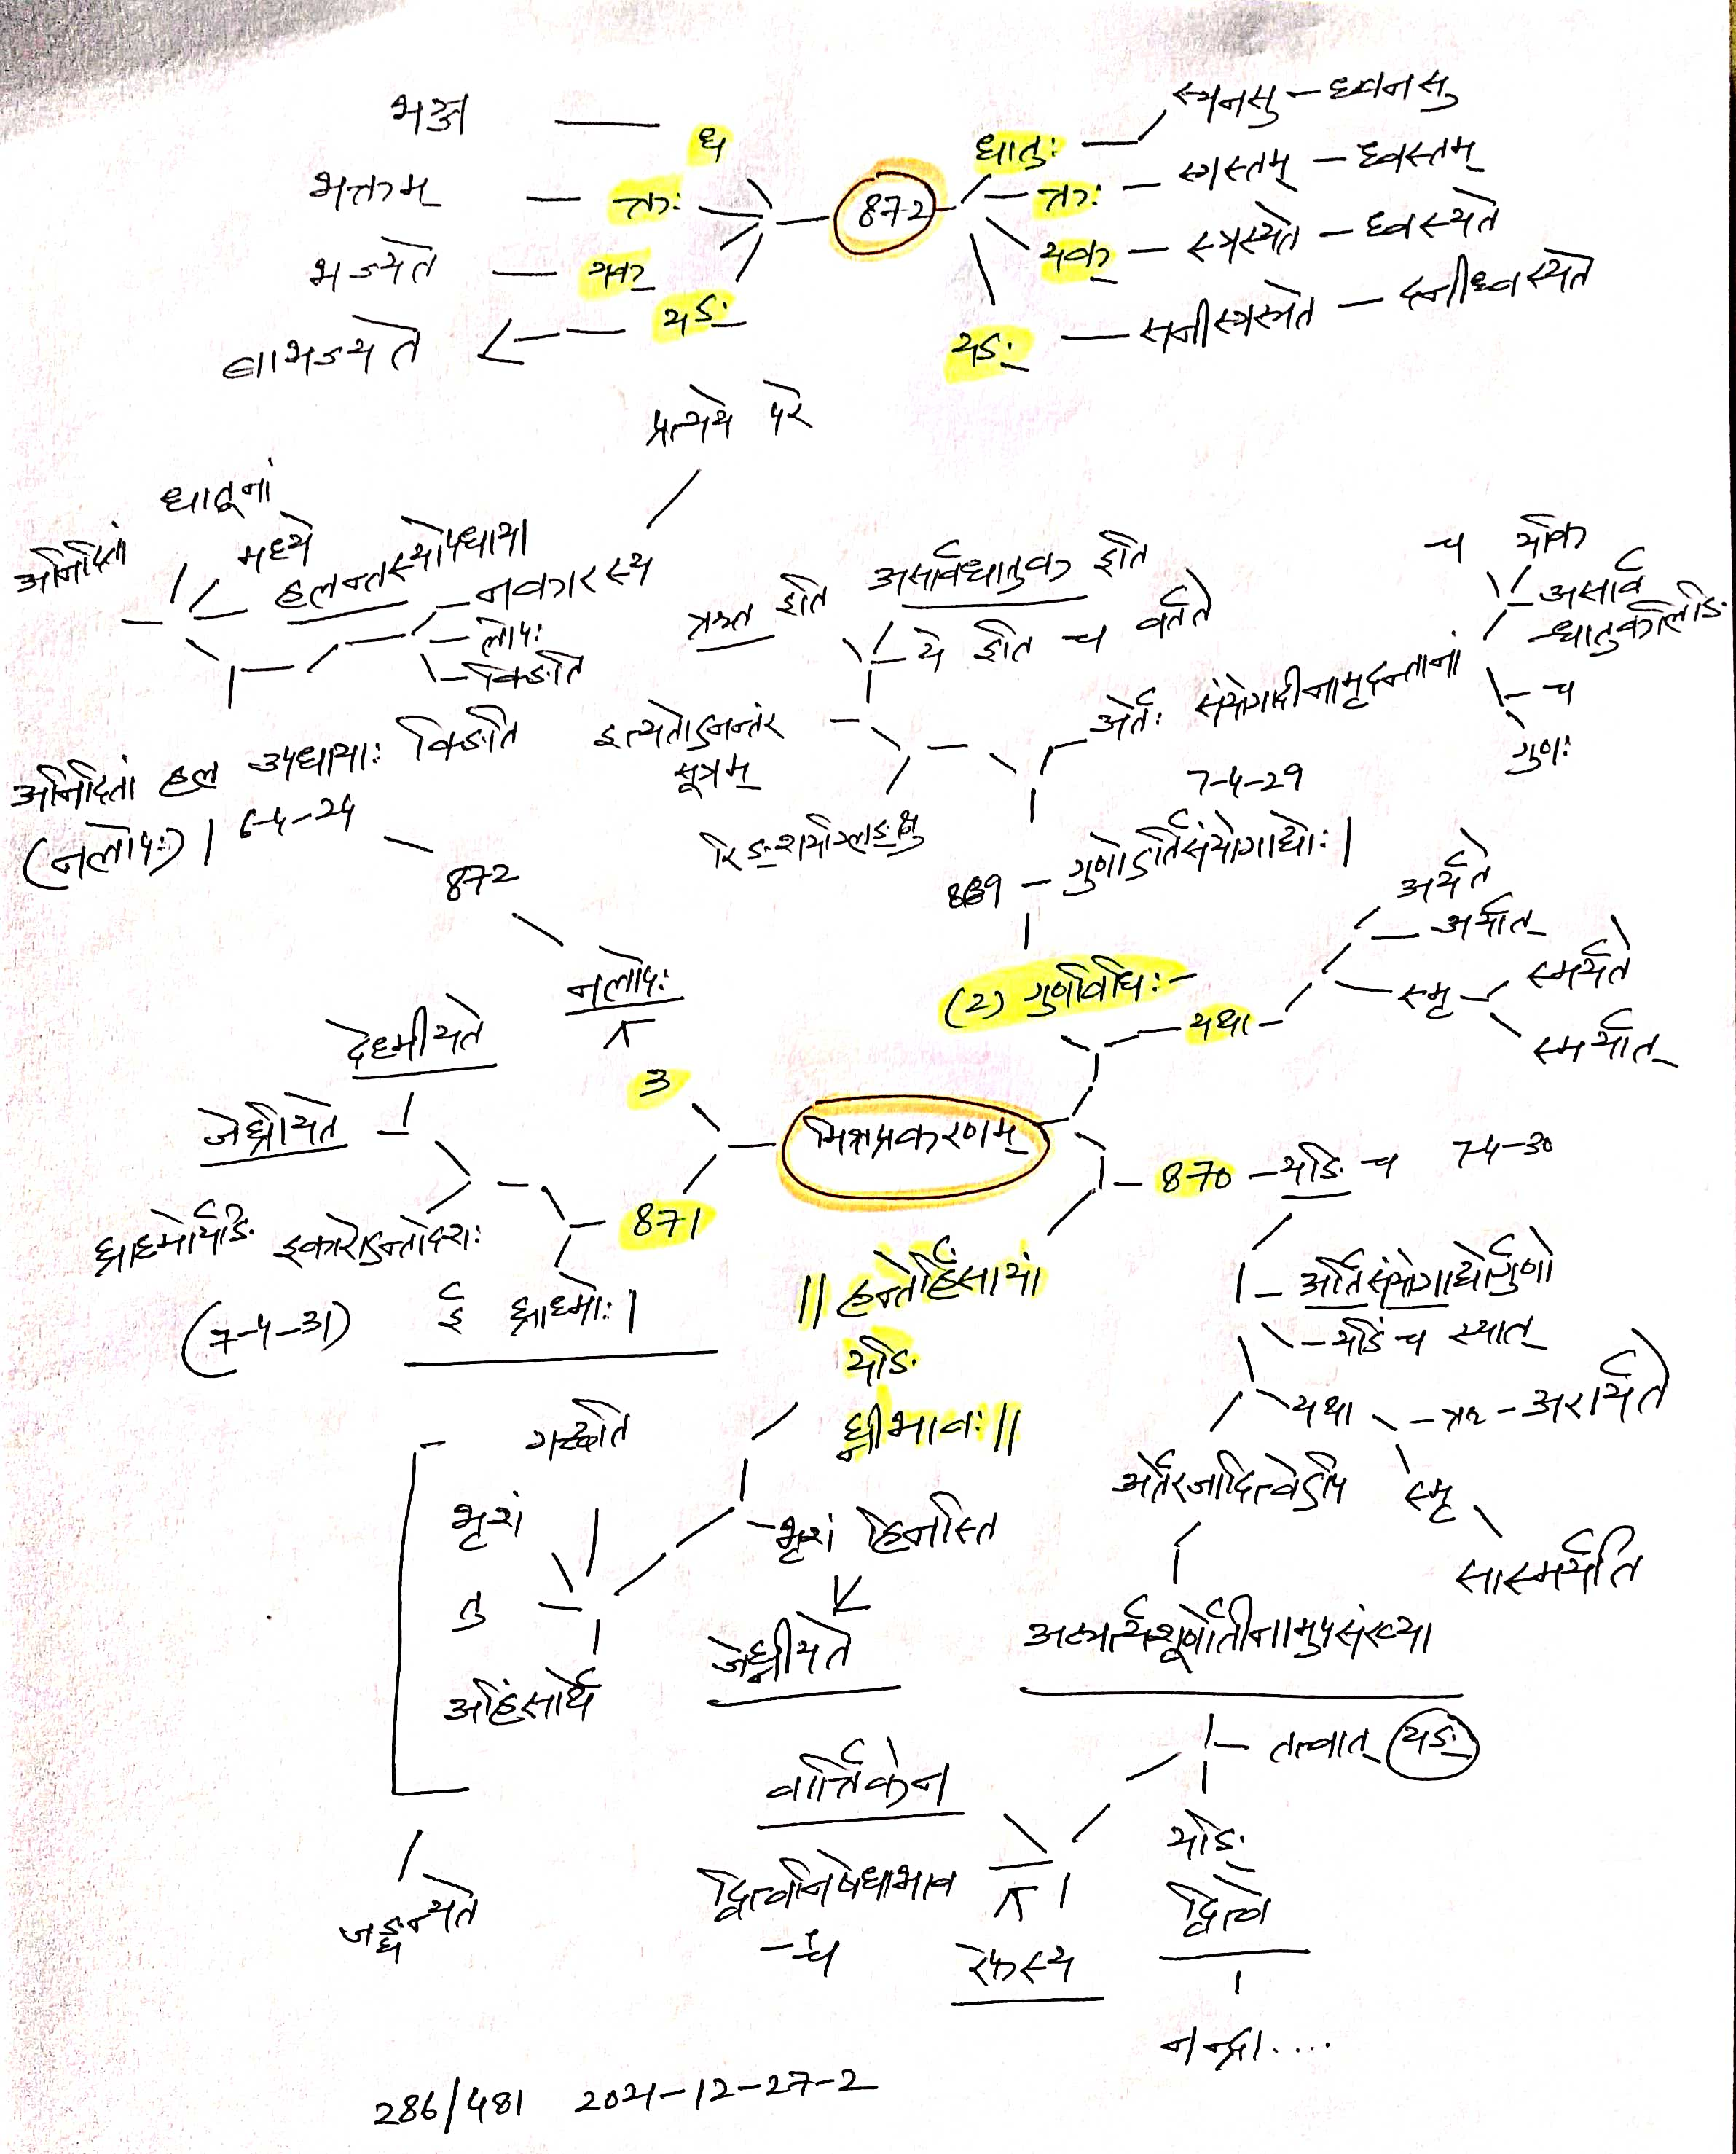 भञ्ज — ध
भक्तम् — क्तः
भज्यते — यक्
बाभज्यते — यङ्
872
धातुः — स्रनसु — ध्वनसु
क्तः — स्रस्तम् — ध्वस्तम्
यक् — स्रस्यते — ध्वस्यते
यङ् — सनीस्रस्यते — दनीध्वस्यते
प्रत्यये परे
धातूनां
अनिदितां
मध्ये
हलन्तस्योपधाया
नकारस्य
लोपः
क्ङिति
अनिदितां हल उपधायाः क्ङिति
(नलोपः) | 6-4-24
872
नलोपः
ऋत इति असार्वधातुक इति
ये इति च वर्तते
इत्यतोऽनन्तरं
सूत्रम्
रिङ्शयग्लिङ्क्षु
अर्तेः संयोगादीनामृदन्तानां
च यकि
असार्व
धातुकलिङि
च
गुणः
7-4-29
869 — गुणोऽर्तिसंयोगाद्योः |
(2) गुणविधिः -
यथा
अर्यते
अर्यात्
स्मृ
स्मर्यते
स्मर्यात्
देध्मीयते
जेघ्रीयते
3
मिश्रप्रकरणम्
871
घ्राध्मोर्यङि ईकारोऽन्तादेशः
(7-4-31) ई घ्राध्मोः |
870 — यङि च 7-4-30
अर्तिसंयोगाद्योर्गुणो
यङि च स्यात्
यथा — ऋ — अरार्यते
स्मृ
सास्मर्यति
अर्तेरजादित्वेऽपि
अट्यर्त्यशूर्णोतीनामुपसंख्या
तत्वात् यङ्
यङि
द्वित्वे
नन्द्रा....
|| हन्तेर्हिंसायां
यङि
घ्नीभावः ||
भृशं हिनस्ति
जेघ्नीयते
गच्छति
भृशं
तु
अहिंसार्थे
जङ्घन्यते
वार्त्तिकेन
द्वित्वनिषेधाभाव
रेफस्य
286/481 2021-12-27-2